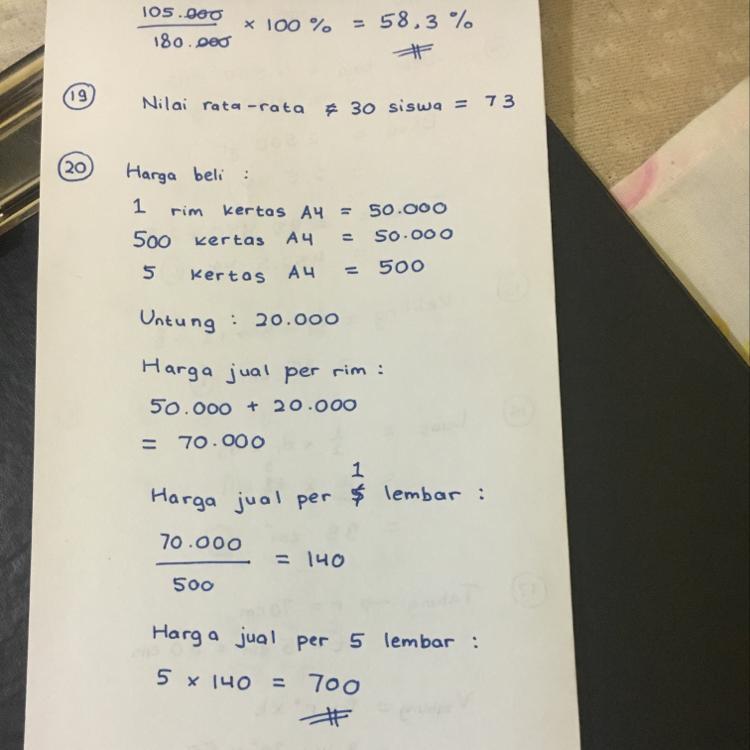 105.000
180.000 × 100 % = 58,3 %
19 Nilai rata-rata 30 siswa = 73
20 Harga beli :
1 rim kertas A4 = 50.000
500 kertas A4 = 50.000
5 kertas A4 = 500
Untung : 20.000
Harga jual per rim :
50.000 + 20.000
= 70.000
1
Harga jual per 5 lembar :
70.000
500 = 140
Harga jual per 5 lembar :
5 × 140 = 700